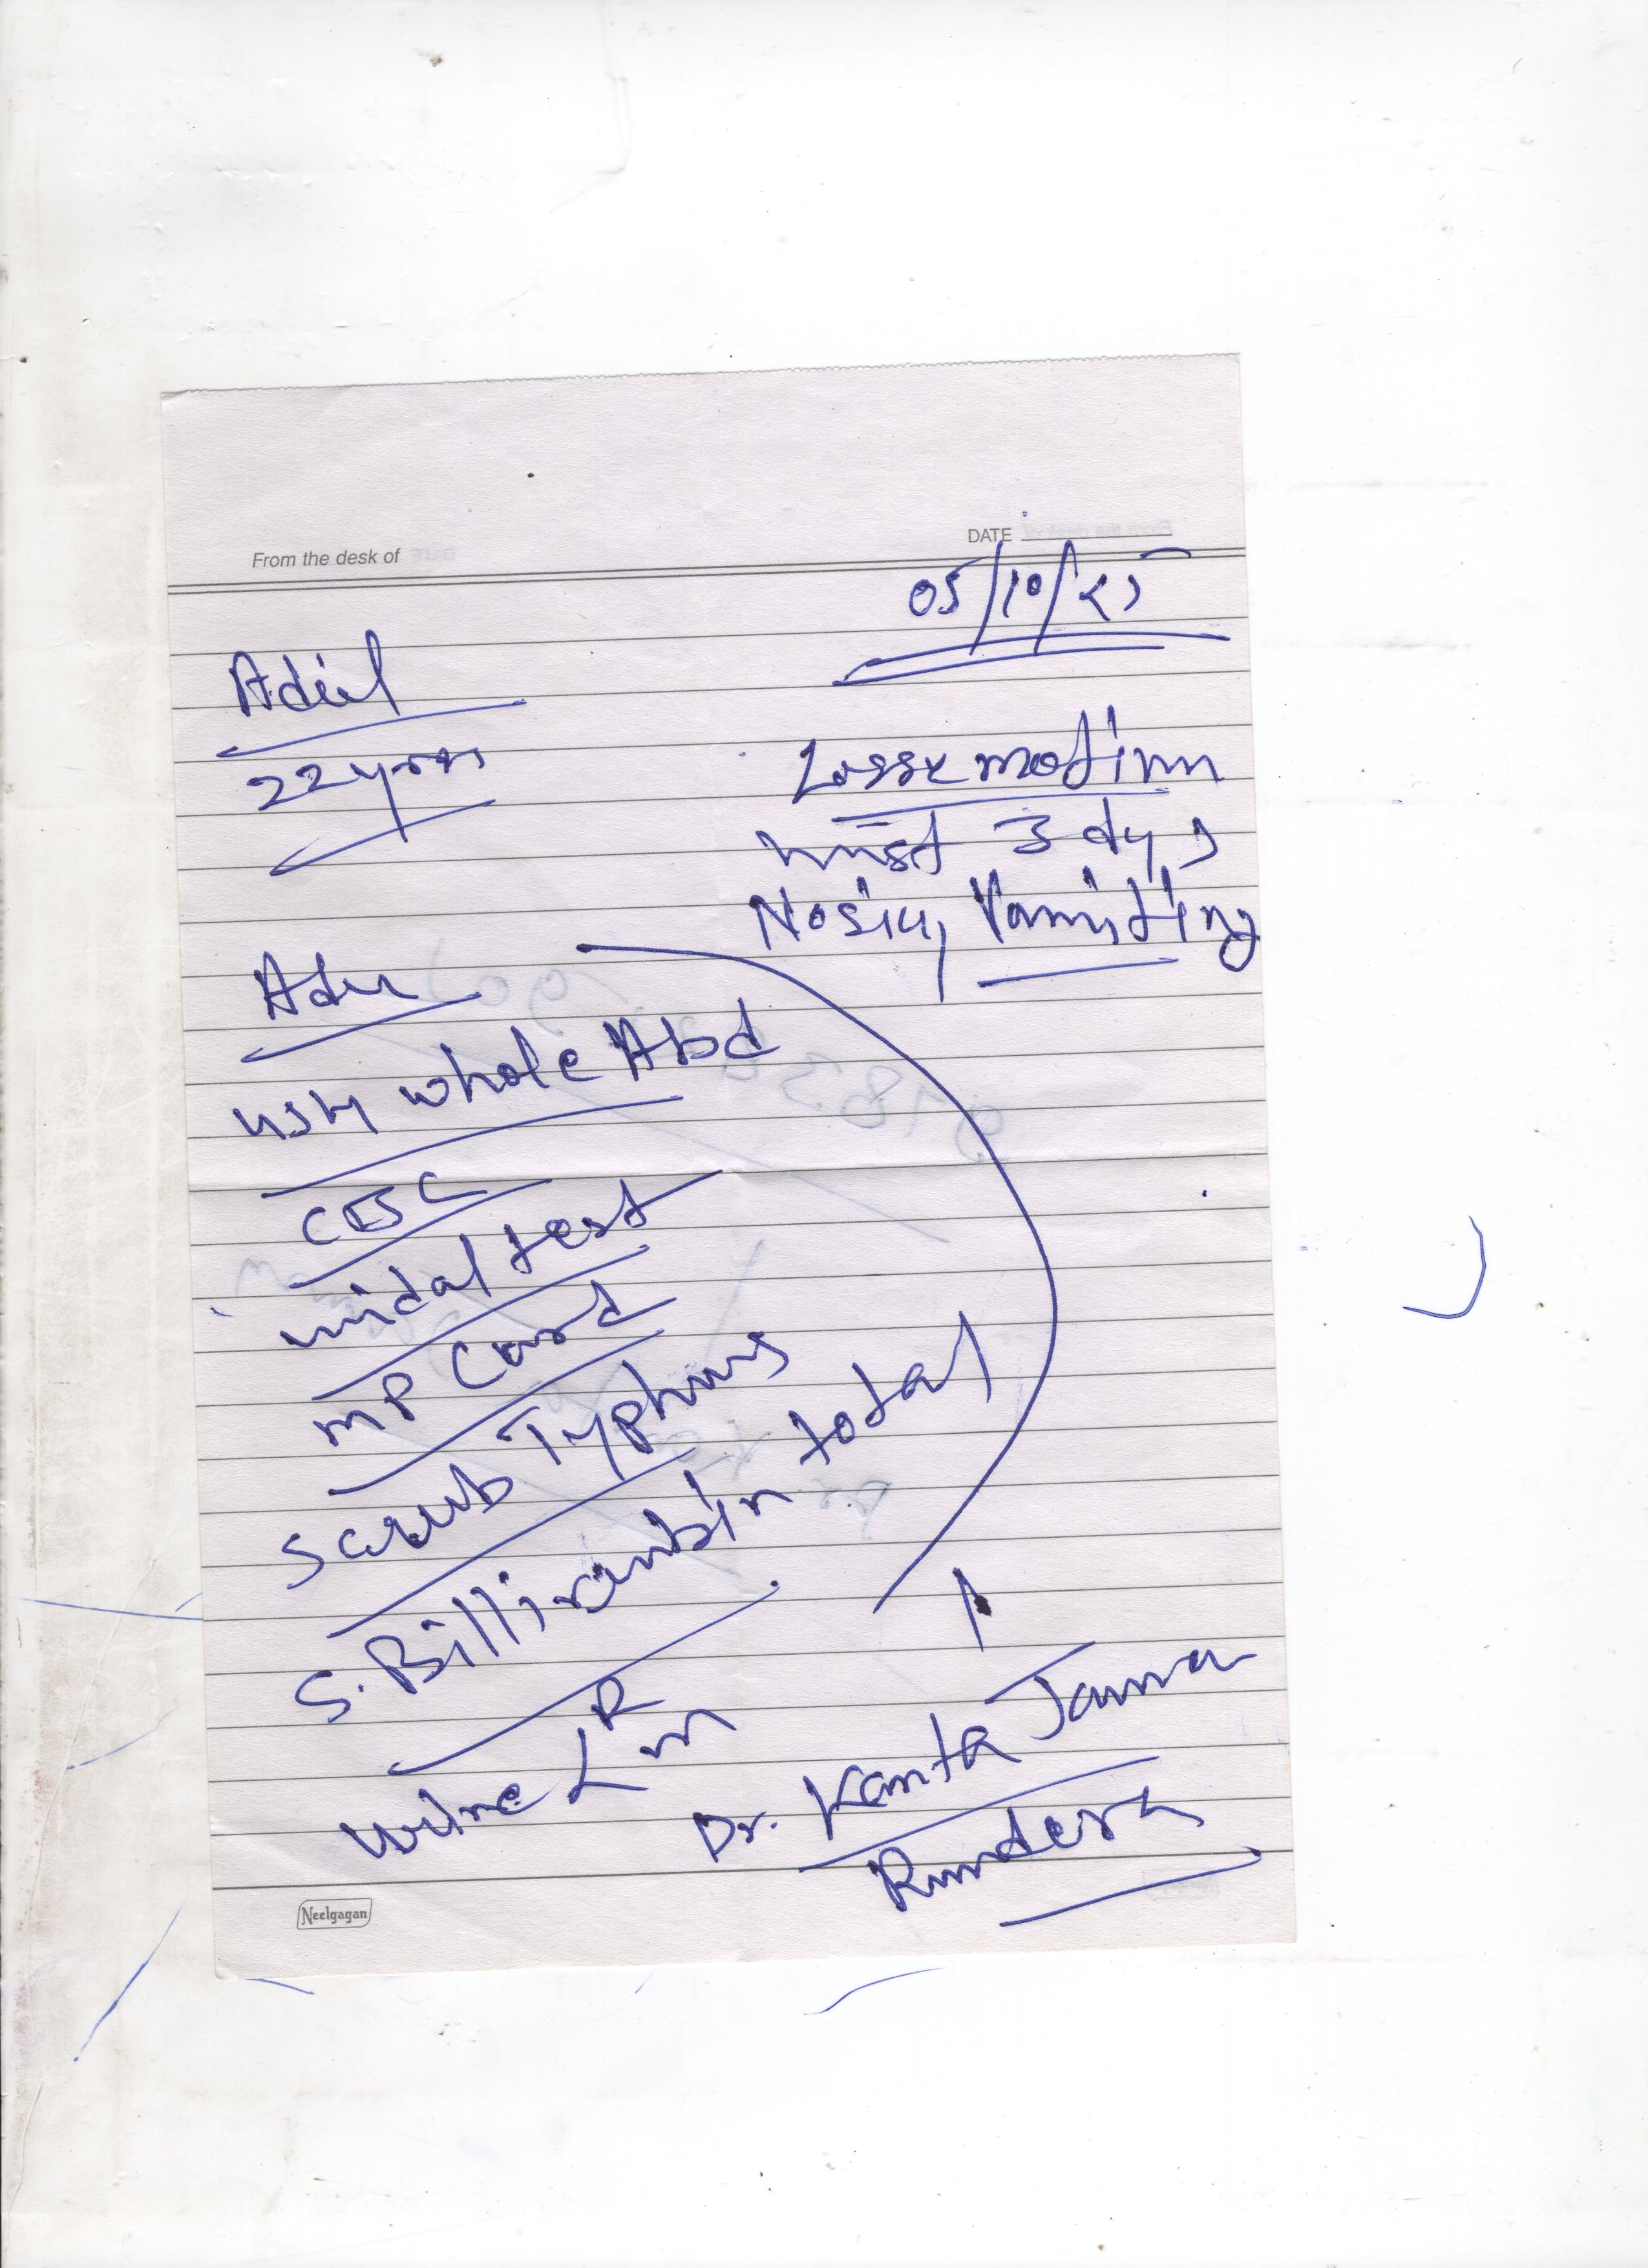 From the desk of
DATE
05/10/25
Adil
22 yrs
Losse motion
3 dys
Nosiu, Vamitting
Adv
USG whole Abd
CBC
widal test
MP Card
Scrub Typhus
S. Billirubin total
Urine R
Dr. Kanta Jamra
Rundera
Neelgagan